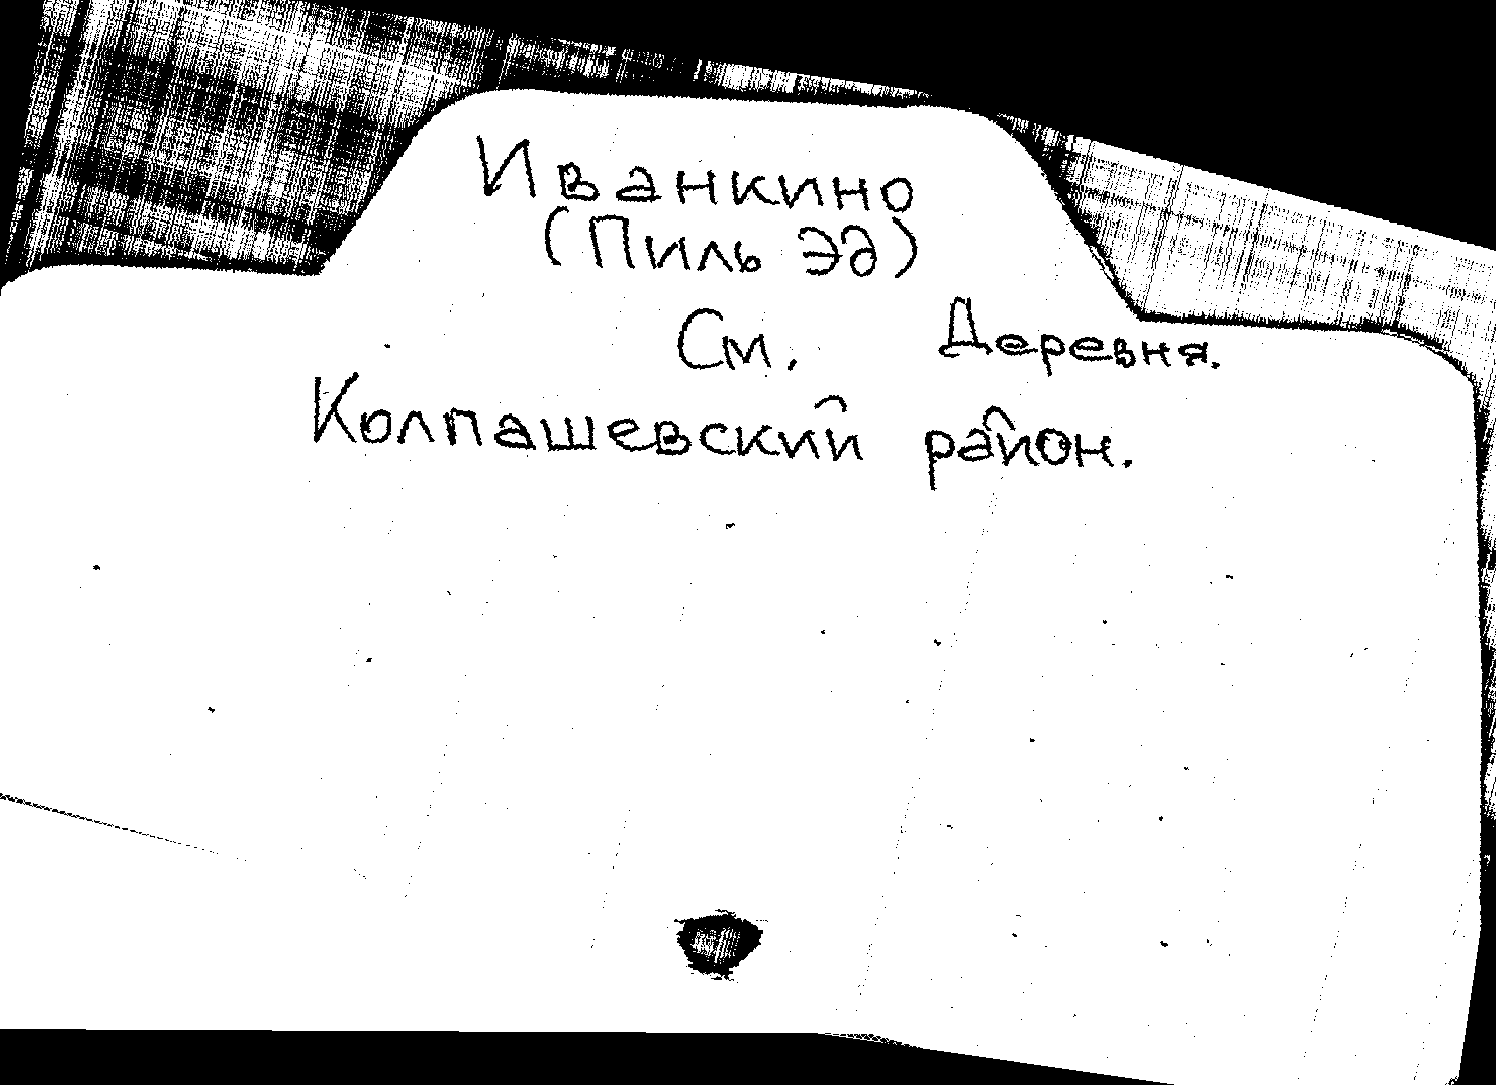 Иванкино
(Пиль Эд)
См. Деревня.
Колпашевский район.